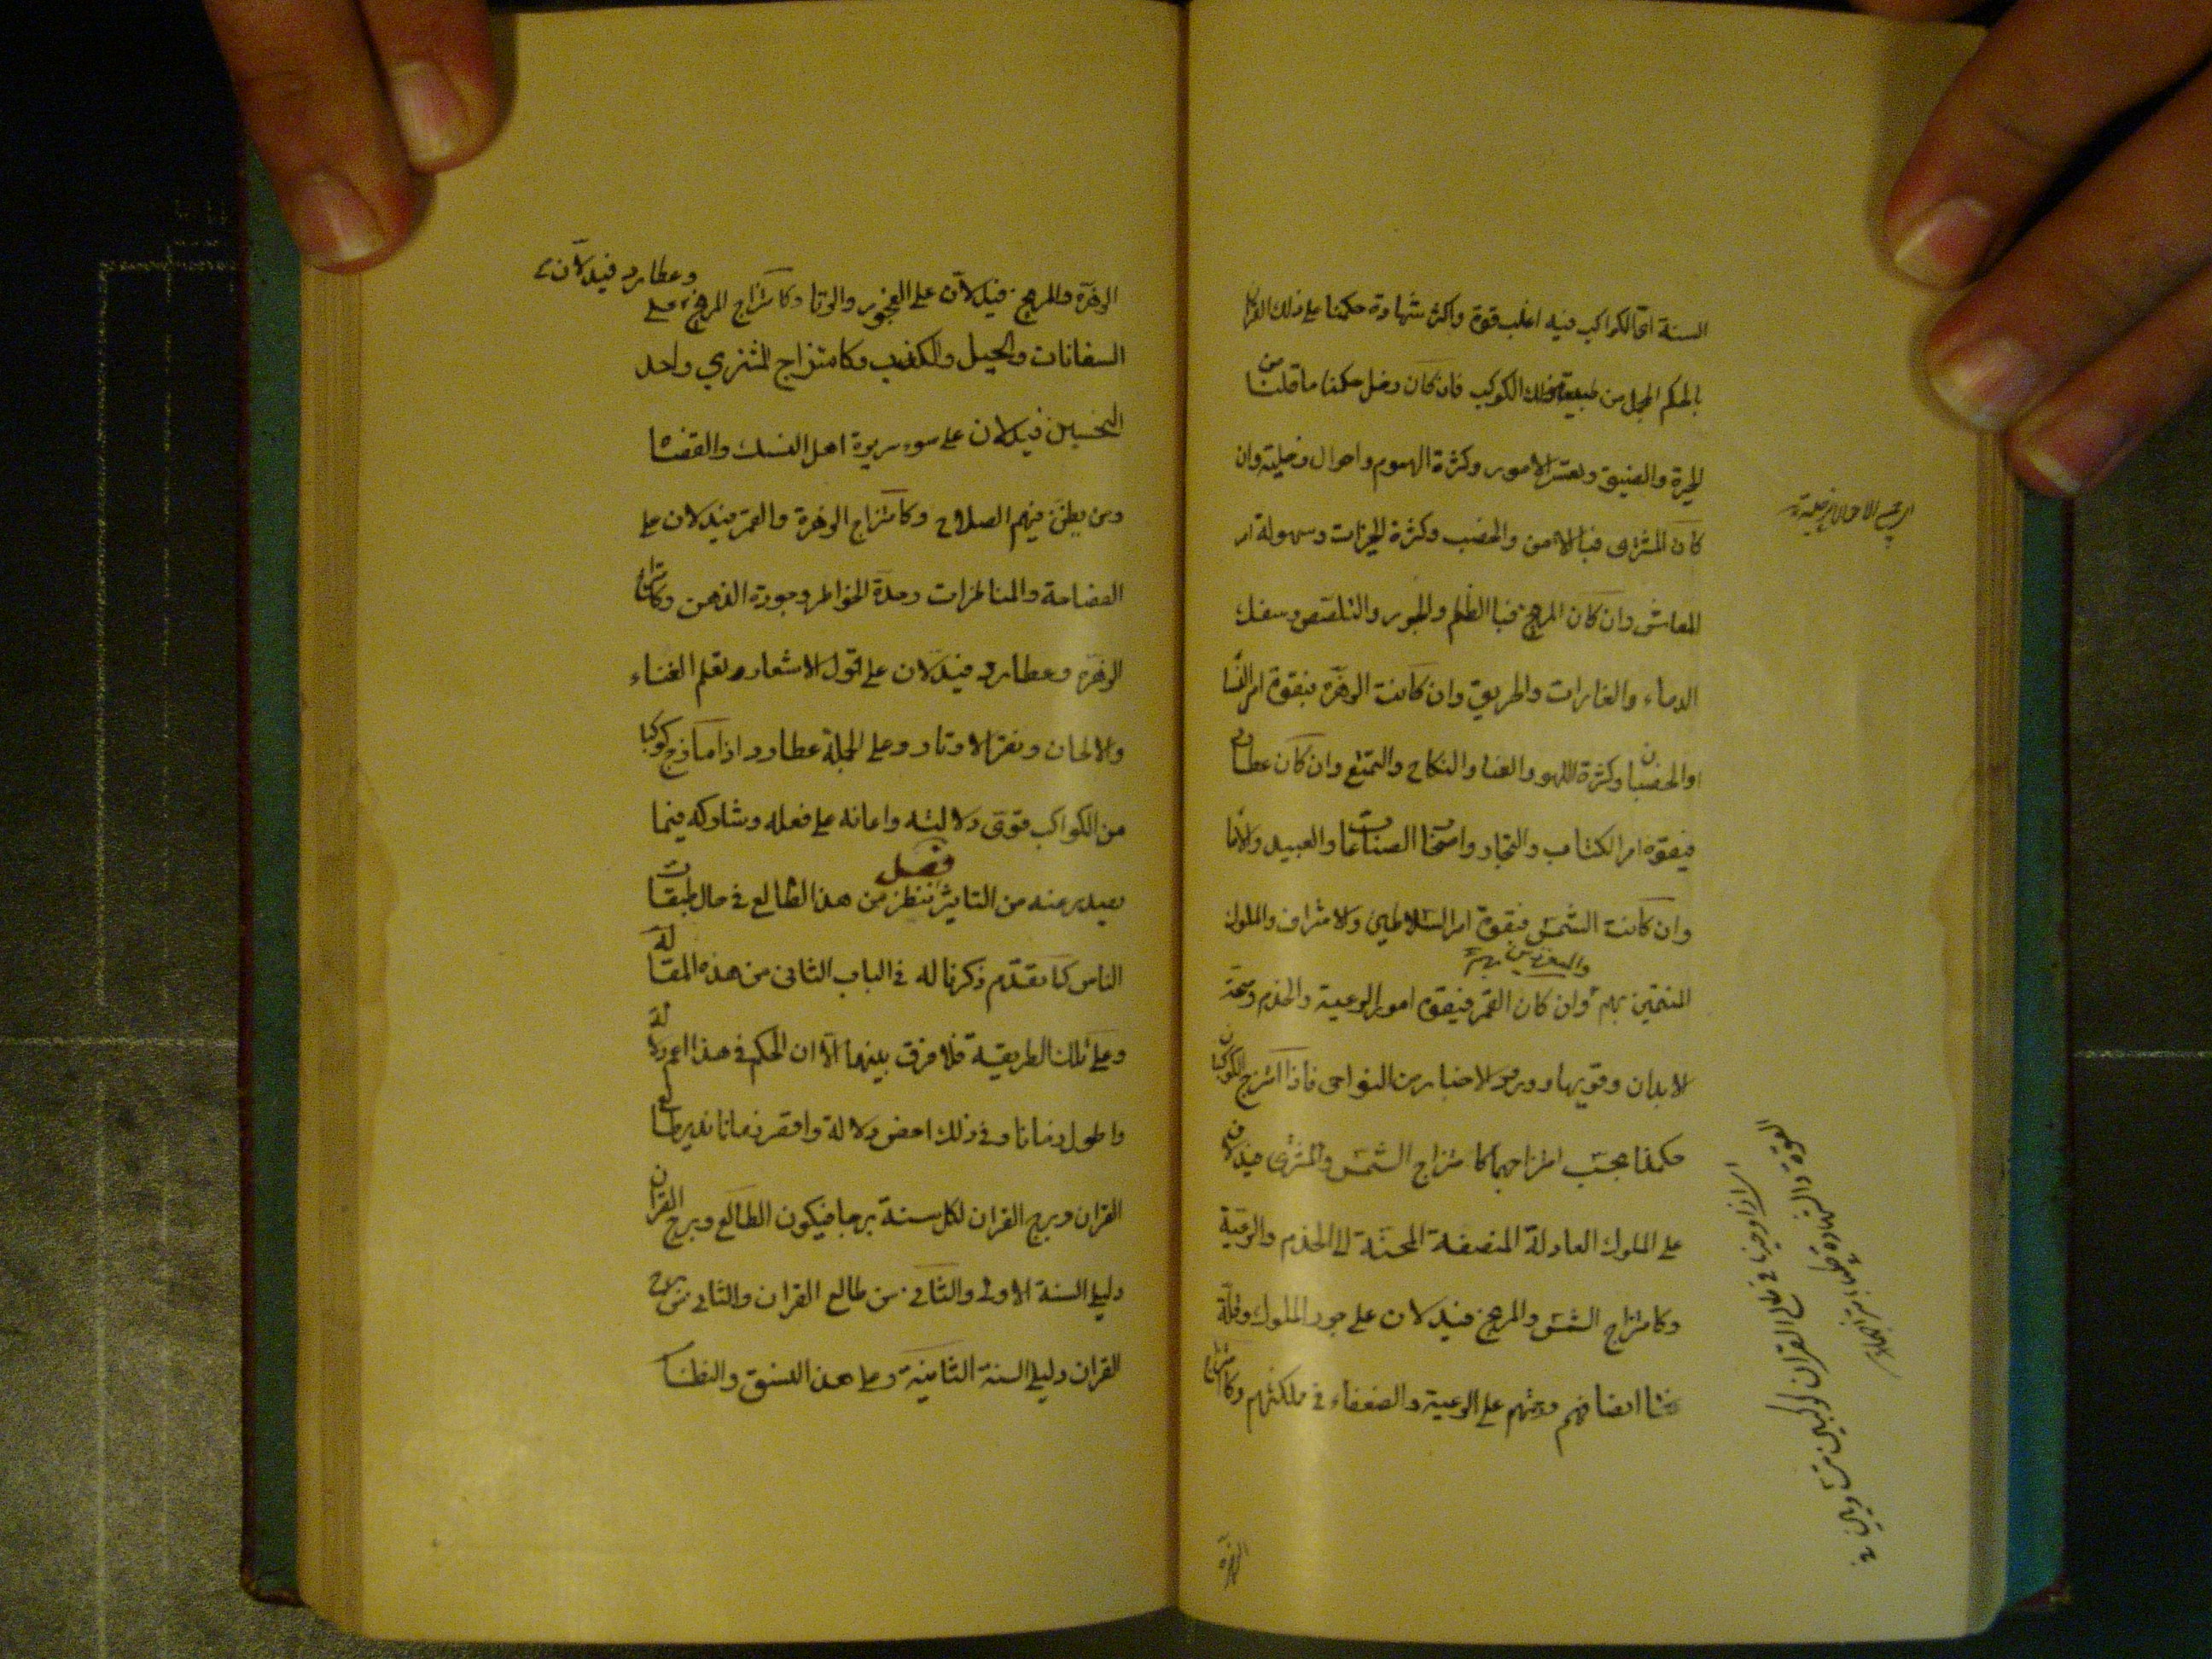 السنة اى الكواكب فيه اغلب قوة واكثر شهادة حكمنا على ذلك القران
بالحكم المجمل من طبيعة ذلك الكوكب فان كان زحل حكمنا ما قلنا من
الحيرة والضيق وتعسر الامور وكثرة الهموم واحوال زحلية وان
كان المشترى فبا الامن والخصب وكثرة الخيرات وسهولة امر
المعاش وان كان المريخ فبا الظلم والجور والتلصص وسفك
الدماء والغارات والحريق وان كانت الزهرة فبقوة امر النسا
والخصيان وكثرة اللهو والغنا والنكاح والتمتع وان كان عطارد
فبقوة امر الكتاب والتجار واصحاب الصناعات والعبيد والاما
وان كانت الشمس فبقوة امر السلاطين والاشراف والملوك
المنتمين بهم وان كان القمر فبقوة امور الرعية والخدم وصحة
الابدان وقوتها وورود الاخبار من النواحى فاذا امتزج الكوكبان
حكمنا بحسب امزاجهما كامتزاج الشمس والمشترى فيدلان
على الملوك العادلة المنصفة المحسنة الى الخدم والرعية
وكامتزاج الشمس والمريخ فيدلان على جور الملوك وقلة
انصافهم على الرعية والضعفاء فى مملكتهم وكامتزاج
الزهرة
الزهرة والمريخ فيدلان على الفجور والزنا وكامتزاج المريخ وعطارد فيدلان على
السفانات والحيل والكذب وكامتزاج المشترى واحد
النحسين فيدلان على سوء سريرة اهل النسك والقضاة
ومن يظن فيهم الصلاح وكامتزاج الزهرة والقمر فيدلان على
الفصاحة والمناظرات وحدة الخواطر وجودة الذهن وكامتزاج
الزهرة وعطارد فيدلان على قول الاشعار وتعلم الغناء
والالحان ونقر الاوتار وعلى الجملة عطارد اذا مازج كوكبا
من الكواكب قوى دلالته واعانه على فعله وشاركه فيما
يصدر عنه من التاثير فصل ننظر من هذا الطالع فى حال طبقات
الناس كما تقدم ذكرنا له فى الباب الثانى من هذه المقالة
وعلى تلك الطريقة فلا فرق بينهما الا ان الحكم فى هذا اعم دلالة
واطول زمانا وفى ذلك اخص دلالة واقصر زمانا ندير طالع
القران وبرج القران لكل سنة برجا فيكون الطالع وبرج القران
دليلى السنة الاولى والثانى من طالع القران والثانى من برج
القران دليلى السنة الثانية وعلى هذا النسق والنظام